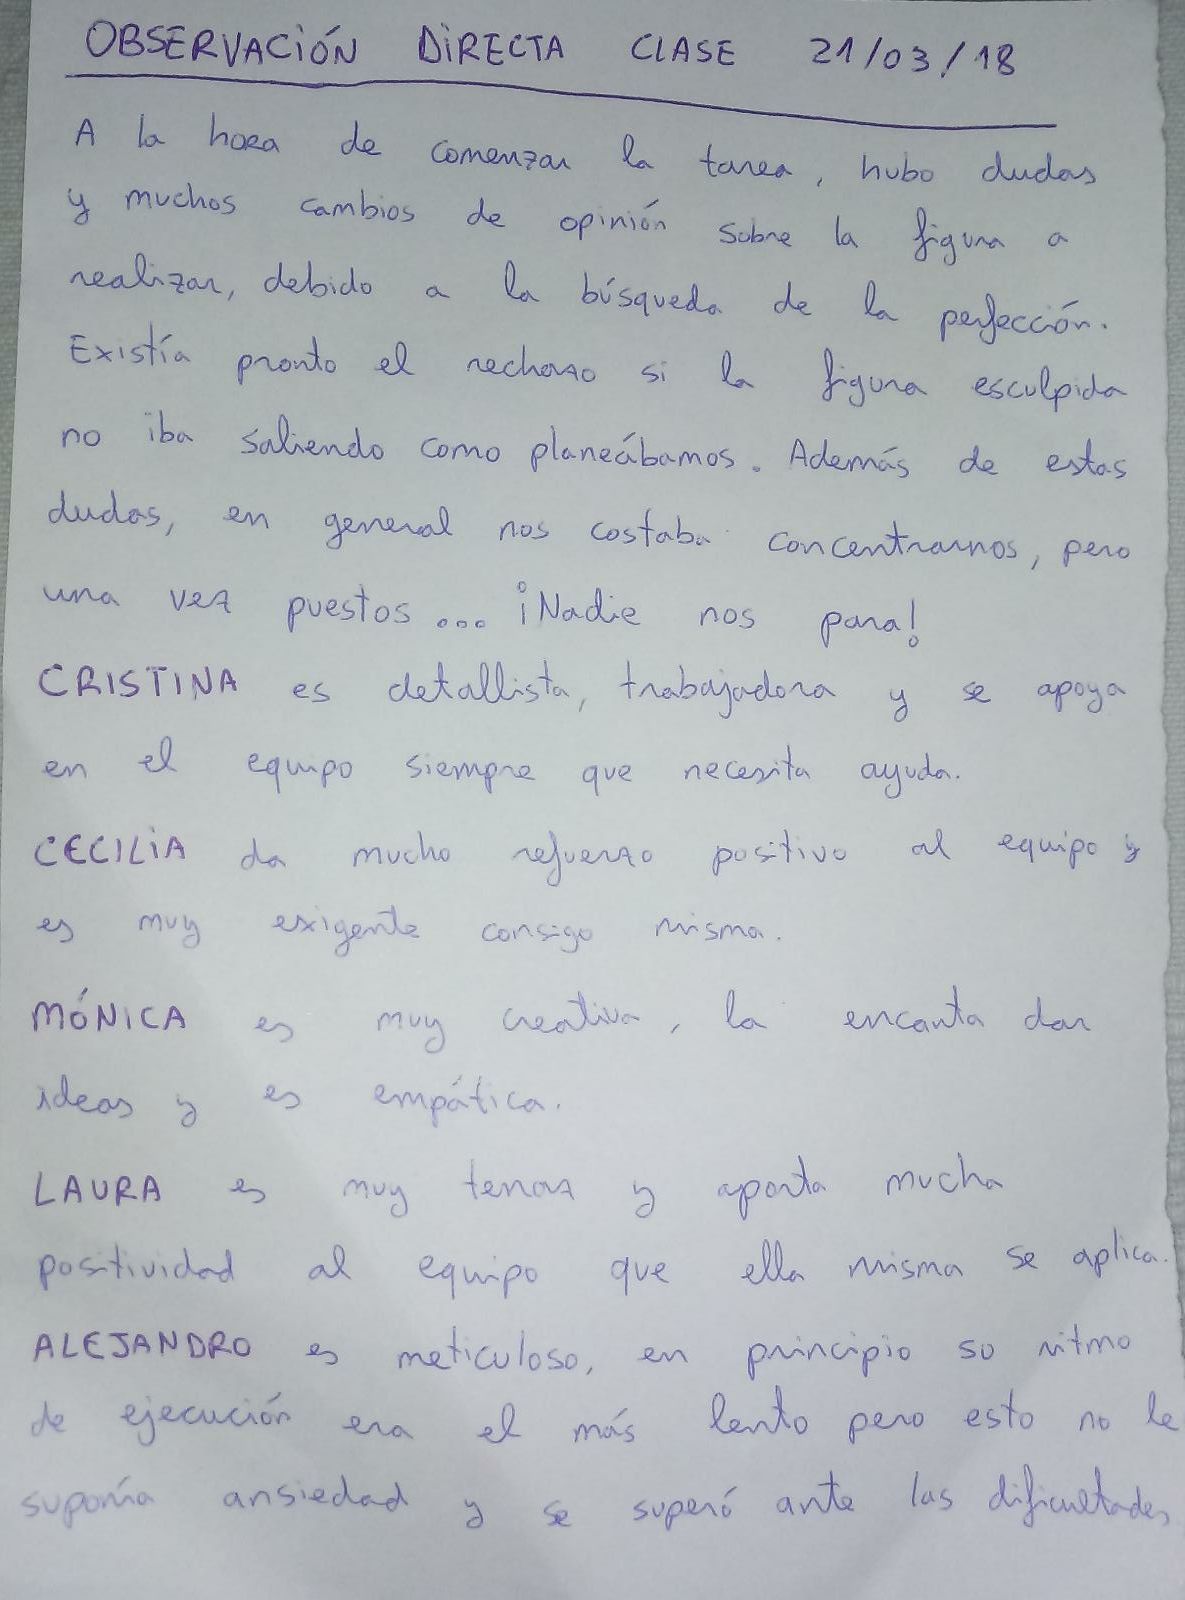 OBSERVACIÓN DIRECTA CLASE 21/03/18
A la hora de comenzar la tarea, hubo dudas
y muchos cambios de opinión sobre la figura a
realizar, debido a la búsqueda de la perfección.
Existía pronto el rechazo si la figura esculpida
no iba saliendo como planeábamos. Además de estas
dudas, en general nos costaba concentrarnos, pero
una vez puestos... ¡Nadie nos para!
CRISTINA es detallista, trabajadora y se apoya
en el equipo siempre que necesita ayuda.
CECILIA da mucho refuerzo positivo al equipo y
es muy exigente consigo misma.
MÓNICA es muy creativa, la encanta dar
ideas y es empática.
LAURA es muy tenaz y aporta mucha
positividad al equipo que ella misma se aplica.
ALEJANDRO es meticuloso, en principio su ritmo
de ejecución era el más lento pero esto no le
suponía ansiedad y se superó ante las dificultades